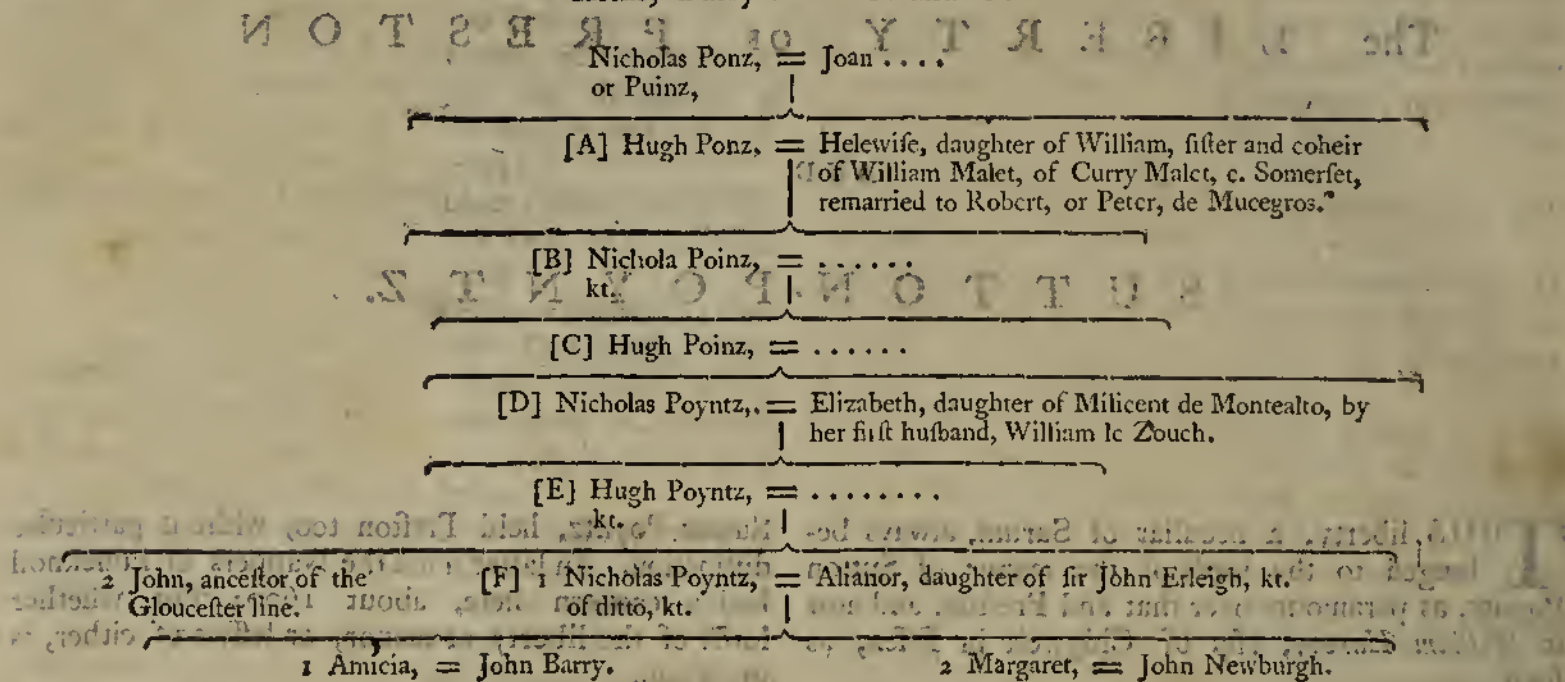 Nicholas Ponz, = Joan ....
or Puinz,
[A] Hugh Ponz, = Helewiſe, daughter of William, ſiſter and coheir
of William Malet, of Curry Malet, c. Somerſet,
remarried to Robert, or Peter, de Mucegros.*
[B] Nichola Poinz, = ......
kt.
[C] Hugh Poinz, = ......
[D] Nicholas Poyntz, = Elizabeth, daughter of Milicent de Montealto, by
her firſt huſband, William le Zouch.
[E] Hugh Poyntz, = ........
kt.
2 John, anceſtor of the [F] 1 Nicholas Poyntz, = Alianor, daughter of ſir John Erleigh, kt.
Glouceſter line. of ditto, kt.
1 Amicia, = John Barry. 2 Margaret, = John Newburgh.